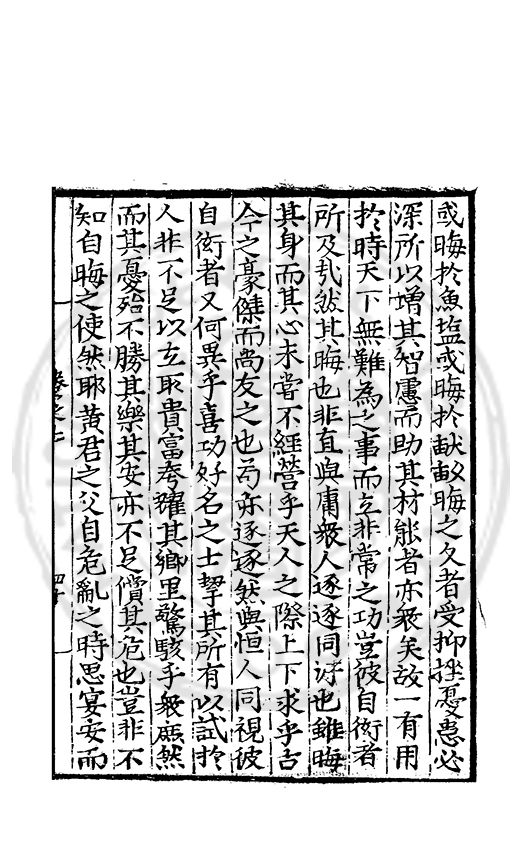 或晦於魚塩或晦於畎畝晦之久者受抑挫憂患必
深所以增其智慮而助其材能者亦衆矣故一有用
於時天下無難為之事而立非常之功豈彼自衒者
所及㢤然其晦也非直與庸衆人逐逐同
也雖晦
其身而其心未嘗不經營乎天人之際上下求乎古
今之豪傑而尚友之也苟亦逐逐然與恒人同視彼
自衒者又何異乎喜功好名之士挈其所有以試於
人非不足以立取貴富夸耀其鄉里驚駭乎衆庶然
而其憂殆不勝其樂其安亦不足償其危也豈非不
知自晦之使然耶黃君之父自危亂之時思宴安而
卷之七
四十